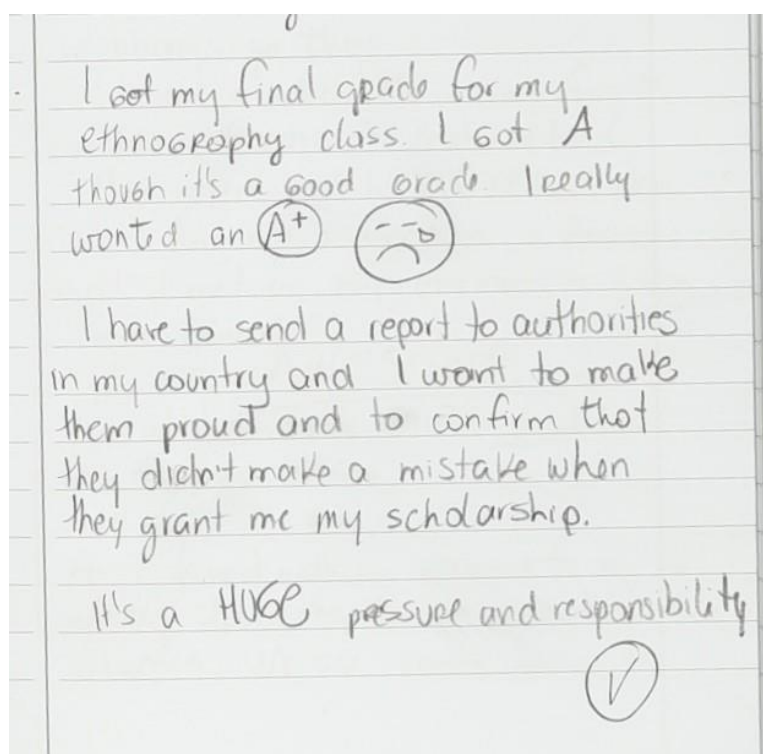 I got my final grade for my
ethnography class. I got A
though it's a good grade. I really
wanted an A+
I have to send a report to authorities
in my country and I want to make
them proud and to confirm that
they didn't make a mistake when
they grant me my scholarship.
It's a HUGE pressure and responsibility
V